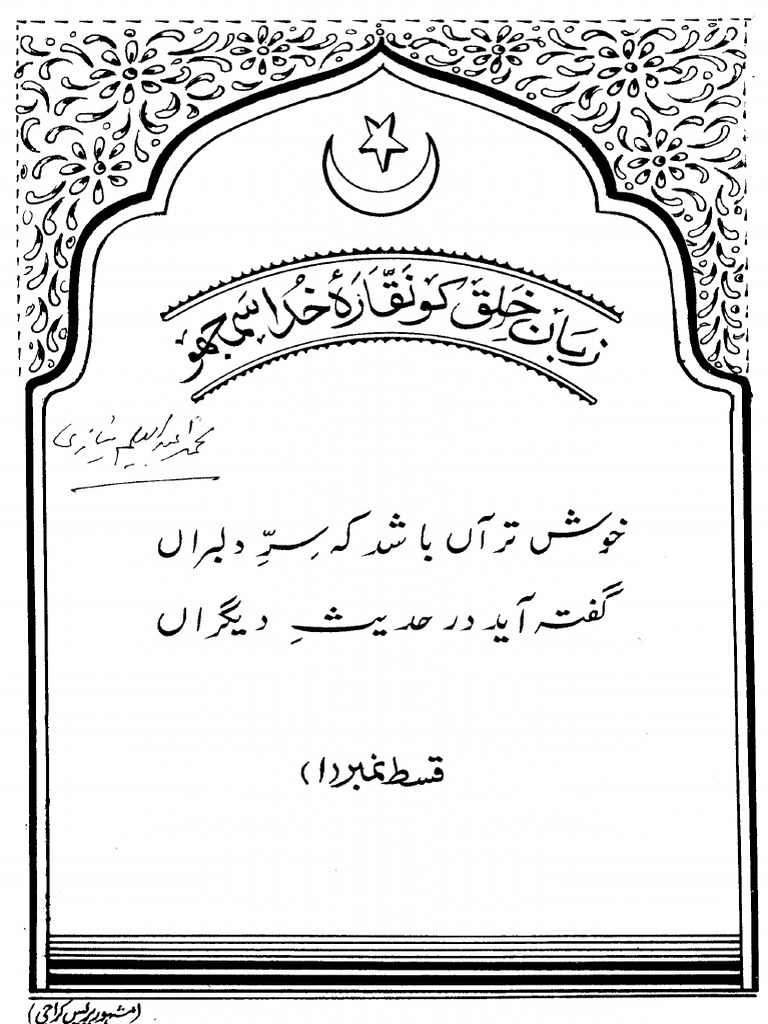 زبانِ خَلق کو نَقّارۂ خُدا سمجھو
محمد عبدالعلیم نیازی
خوش تر آں باشد کہ سِرِّ دلبراں
گفتہ آید در حدیثِ دیگراں
قسط نمبر (۱)
(مشہور پریس کراچی)